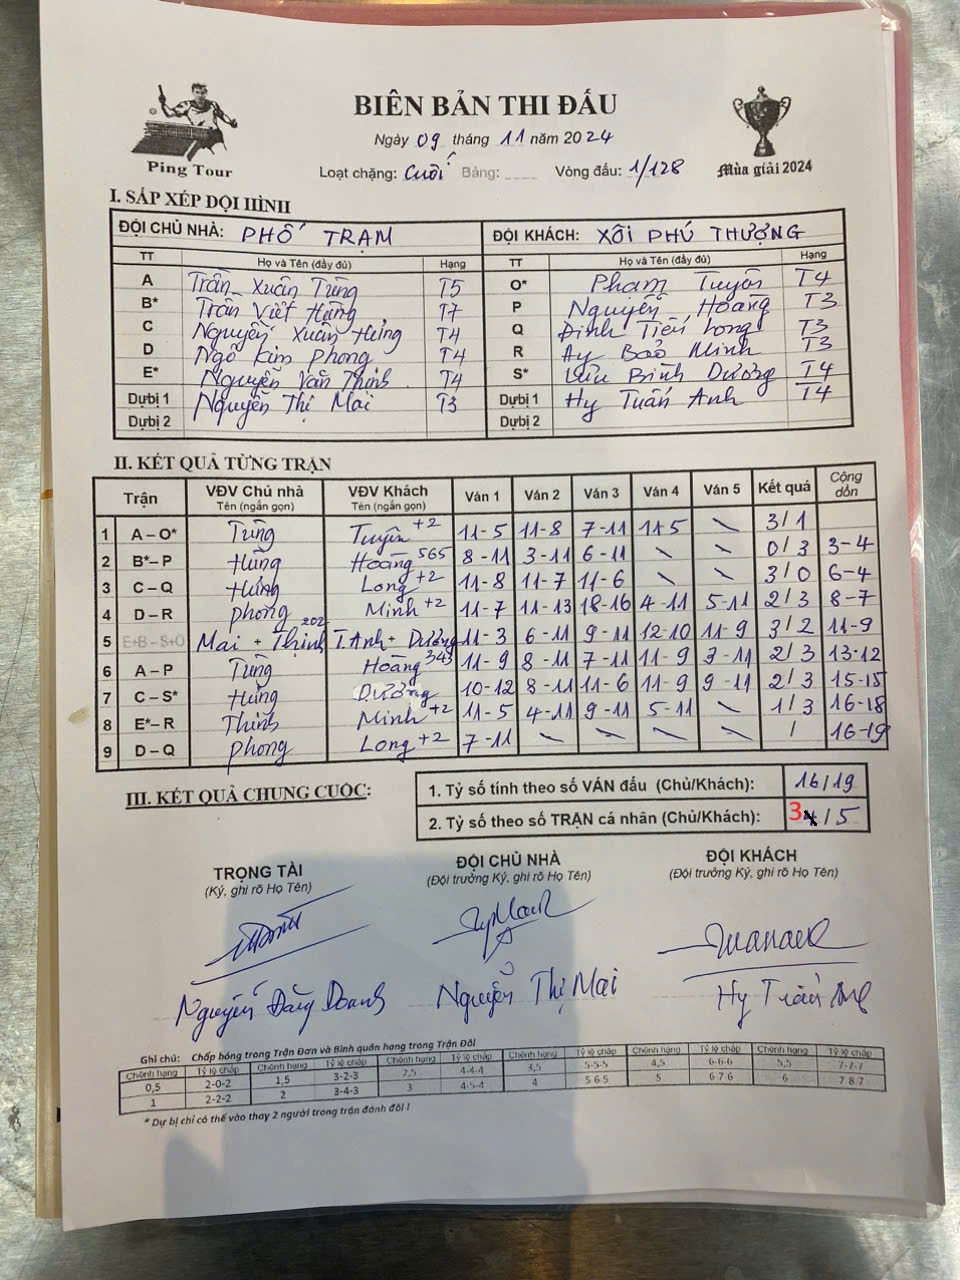 BIÊN BẢN THI ĐẤU
Ngày 09 tháng 11 năm 2024
Ping Tour
Loạt chặng: Cuối Bảng: ____ Vòng đấu: 1/128
Mùa giải 2024
I. SẮP XẾP ĐỘI HÌNH
ĐỘI CHỦ NHÀ: PHỐ TRẠM ĐỘI KHÁCH: XÔI PHÚ THƯỢNG
TT Họ và Tên (đầy đủ) Hạng TT Họ và Tên (đầy đủ) Hạng
A Trần Xuân Tùng T5 O* Phạm Tuyên T4
B* Trần Viết Hùng T7 P Nguyễn Hoàng T3
C Nguyễn Xuân Hưng T4 Q Đinh Tiến Long T3
D Ngô Kim Phong T4 R Ay Bảo Minh T3
E* Nguyễn Văn Thịnh T4 S* Lưu Bình Dương T4
Dự bị 1 Nguyễn Thị Mai T3 Dự bị 1 Hy Tuấn Anh T4
Dự bị 2 Dự bị 2
II. KẾT QUẢ TỪNG TRẬN
Trận VĐV Chủ nhà Tên (ngắn gọn) VĐV Khách Tên (ngắn gọn) Ván 1 Ván 2 Ván 3 Ván 4 Ván 5 Kết quả Cộng dồn
1 A – O* Tùng Tuyên +2 11-5 11-8 7-11 11-5 \ 3/1
2 B* – P Hùng Hoàng 565 8-11 3-11 6-11 \ \ 0/3 3-4
3 C – Q Hưng Long +2 11-8 11-7 11-6 \ \ 3/0 6-4
4 D – R Phong Minh +2 11-7 11-13 18-16 4-11 5-11 2/3 8-7
5 E+B – S+O Mai + Thịnh 202 T.Anh + Dương 11-3 6-11 9-11 12-10 11-9 3/2 11-9
6 A – P Tùng Hoàng 343 11-9 8-11 7-11 11-9 7-11 2/3 13-12
7 C – S* Hưng Dương 10-12 8-11 11-6 11-9 9-11 2/3 15-15
8 E* – R Thịnh Minh +2 11-5 4-11 9-11 5-11 \ 1/3 16-18
9 D – Q Phong Long +2 7-11 \ \ \ \ / 16-19
III. KẾT QUẢ CHUNG CUỘC:
1. Tỷ số tính theo số VÁN đấu (Chủ/Khách): 16/19
2. Tỷ số theo số TRẬN cá nhân (Chủ/Khách): 3/5
TRỌNG TÀI ĐỘI CHỦ NHÀ ĐỘI KHÁCH
(Ký, ghi rõ Họ Tên) (Đội trưởng Ký, ghi rõ Họ Tên) (Đội trưởng Ký, ghi rõ Họ Tên)
Nguyễn Đăng Doanh Nguyễn Thị Mai Hy Tuấn Anh
Ghi chú: Chấp bóng trong Trận Đơn và Bình quân hạng trong Trận Đôi
Chênh hạng Tỷ lệ chấp Chênh hạng Tỷ lệ chấp Chênh hạng Tỷ lệ chấp Chênh hạng Tỷ lệ chấp Chênh hạng Tỷ lệ chấp Chênh hạng Tỷ lệ chấp
0,5 2-0-2 1,5 3-2-3 2,5 4-4-4 3,5 5-5-5 4,5 6-6-6 5,5 7-7-7
1 2-2-2 2 3-4-3 3 4-5-4 4 5 6 5 5 6 7 6 6 7 8 7
* Dự bị chỉ có thể vào thay 2 người trong trận đánh đôi !